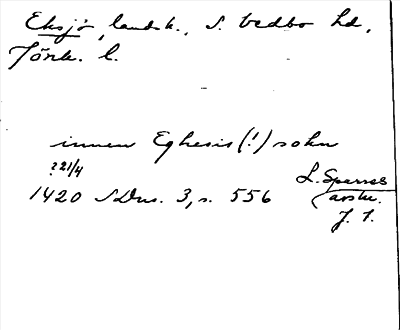 Eksjö, landsk., S. Vedbo hd,
Jönk. l.
innen Eghesis(!) sokn
? 21/4
1420 SDns. 3, s. 556 L. Sparres
avskr.
J. 1.